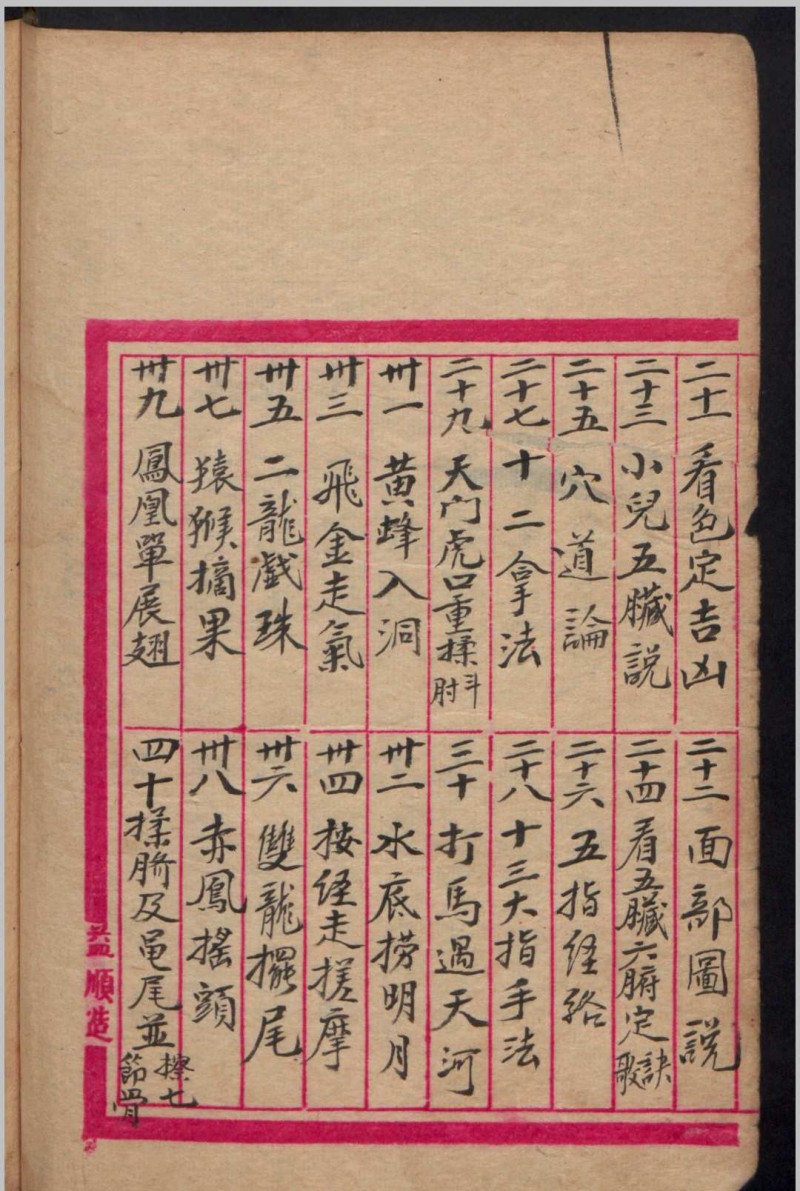 二十一 看色定吉凶
二十二 面部圖説
二十三 小兒五臟説
二十四 看五臟六腑定訣歌
二十五 穴道論
二十六 五指経絡
二十七 十二拿法
二十八 十三大指手法
二十九 天门虎口重揉斗肘
三十 打馬過天河
卅一 黄蜂入洞
卅二 水底撈明月
卅三 飛金走氣
卅四 按経走搓摩
卅五 二龍戯珠
卅六 雙龍擺尾
卅七 猿猴摘果
卅八 赤鳳搖頭
卅九 鳳凰單展翅
四十 揉臍及龟尾並擦七節骨
順造